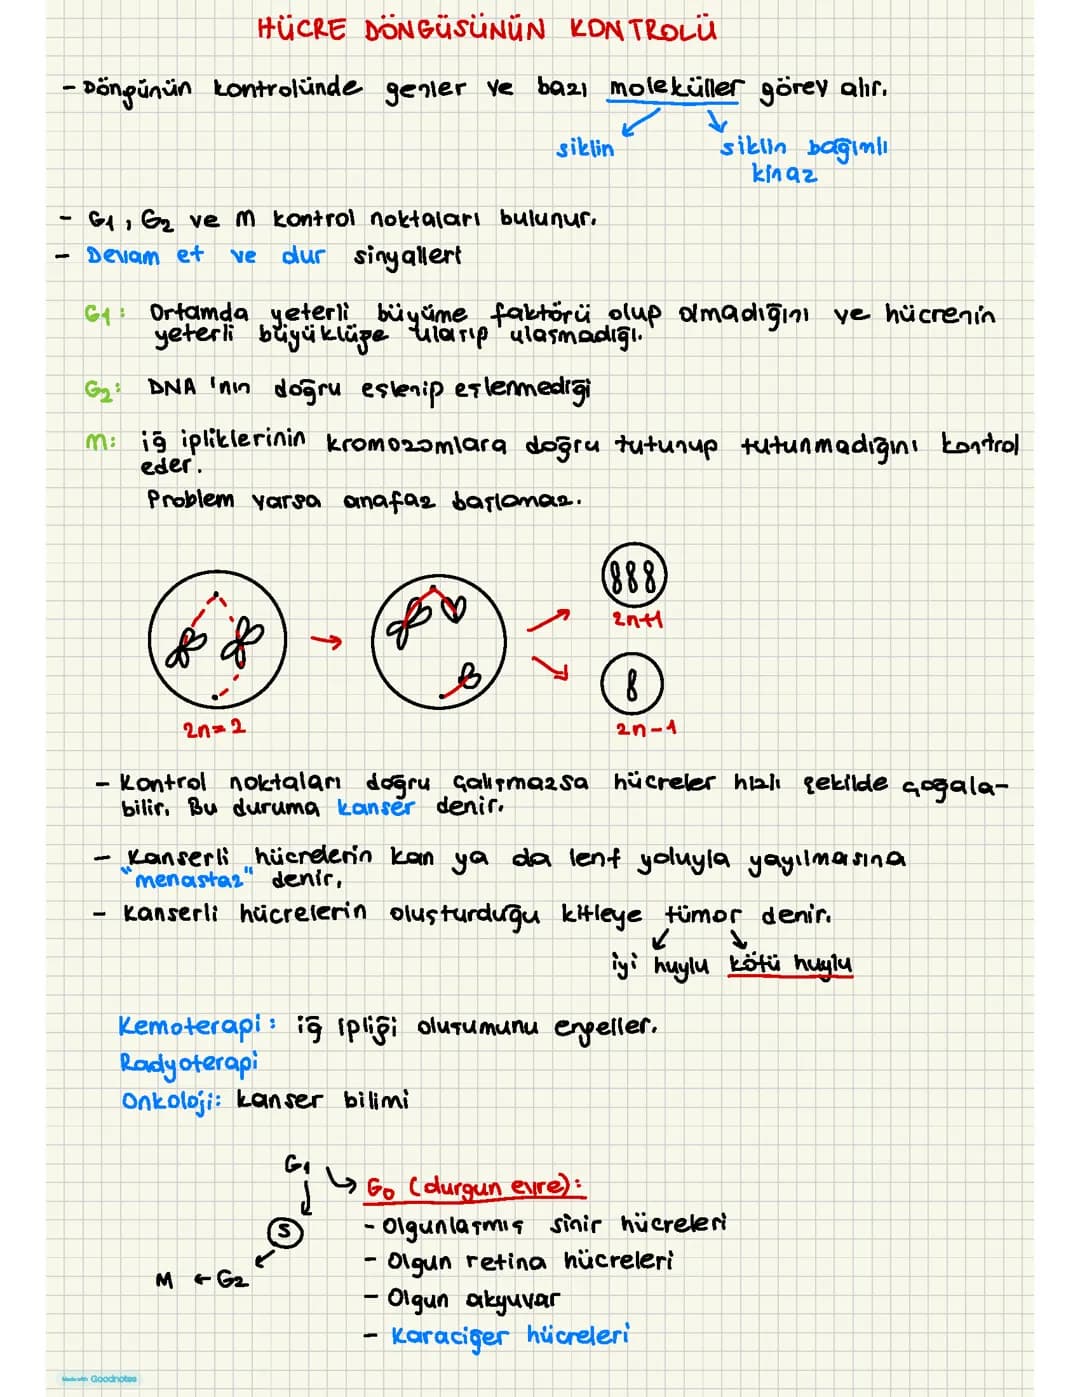 HÜCRE DÖNGÜSÜNÜN KONTROLÜ
- Döngünün kontrolünde genler ve bazı moleküller görev alır.
siklin
siklin bağımlı
kinaz
- G1, G2 ve M kontrol noktaları bulunur.
- Devam et ve dur sinyalleri
G1: Ortamda yeterli büyüme faktörü olup olmadığını ve hücrenin
yeterli büyüklüğe ulaşıp ulaşmadığı.
G2: DNA'nın doğru eşlenip eşlenmediği
M: iğ ipliklerinin kromozomlara doğru tutunup tutunmadığını kontrol
eder.
Problem varsa anafaz başlamaz.
2n=2
2n+1
2n-1
- Kontrol noktaları doğru çalışmazsa hücreler hızlı şekilde çoğala-
bilir. Bu duruma kanser denir.
- Kanserli hücrelerin kan ya da lenf yoluyla yayılmasına
"menastaz" denir.
- Kanserli hücrelerin oluşturduğu kitleye tümor denir.
iyi huylu kötü huylu
Kemoterapi: iğ ipliği oluşumunu engeller.
Radyoterapi
Onkoloji: kanser bilimi
G1
G0 (durgun evre):
S
- Olgunlaşmış sinir hücreleri
- Olgun retina hücreleri
M ← G2
- Olgun akyuvar
- Karaciğer hücreleri
Made with Goodnotes